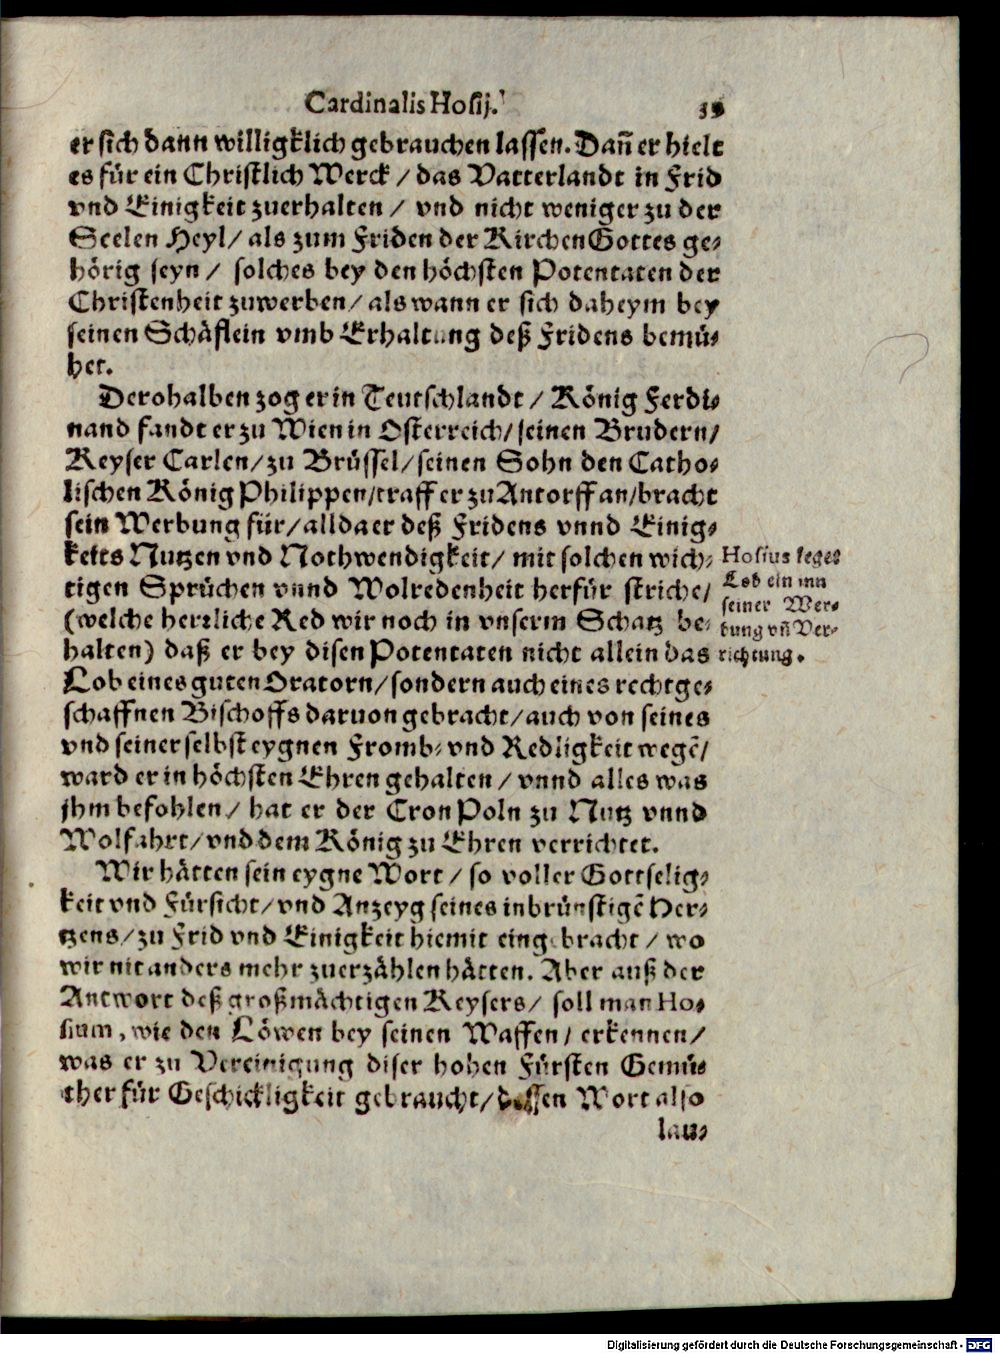 Cardinalis Hosij. 39
er sich dann willigklich gebrauchen lassen. Dañ er hielt
es für ein Christlich Werck / das Vatterlandt in Frid
vnd Einigkeit zuerhalten / vnd nicht weniger zu der
Seelen Heyl / als zum Friden der Kirchen Gottes ge-
hörig seyn / solches bey den höchsten Potentaten der
Christenheit zuwerben / als wann er sich daheym bey
seinen Schäflein vmb Erhaltung deß Fridens bemü-
het.
Derohalben zog er in Teutschlandt / König Ferdi-
nand fandt er zu Wien in Osterreich / seinen Brudern /
Keyser Carlen / zu Brüssel / seinen Sohn den Catho-
lischen König Philippen / traff er zu Antorff an / bracht
sein Werbung für / allda er deß Fridens vnnd Einig-
keits Nutzen vnd Nothwendigkeit / mit solchen wich-
tigen Sprüchen vnnd Wolredenheit herfür striche /
(welche hertzliche Red wir noch in vnserm Schatz be-
halten) daß er bey disen Potentaten nicht allein das
Lob eines guten Oratorn / sondern auch eines rechtge-
schaffnen Bischoffs daruon gebracht / auch von seines
vnd seiner selbst eygnen Fromb- vnd Redligkeit wegẽ /
ward er in höchsten Ehren gehalten / vnnd alles was
jhm befohlen / hat er der Cron Poln zu Nutz vnnd
Wolfahrt / vnd dem König zu Ehren verrichtet.
Hosius leget
Lob ein inn
seiner Wer-
bung vñ Ver-
richtung.
Wir hätten sein eygne Wort / so voller Gottselig-
keit vnd Fürsicht / vnd Anzeyg seines inbrünstigẽ Her-
tzens / zu Frid vnd Einigkeit hiemit eingebracht / wo
wir nit anders mehr zuerzählen hätten. Aber auß der
Antwort deß großmächtigen Keysers / soll man Ho-
sium, wie den Löwen bey seinen Waffen / erkennen /
was er zu Vereinigung diser hohen Fürsten Gemü-
ther für Geschickligkeit gebraucht / dessen Wort also
lau-
Digitalisierung gefördert durch die Deutsche Forschungsgemeinschaft - DFG